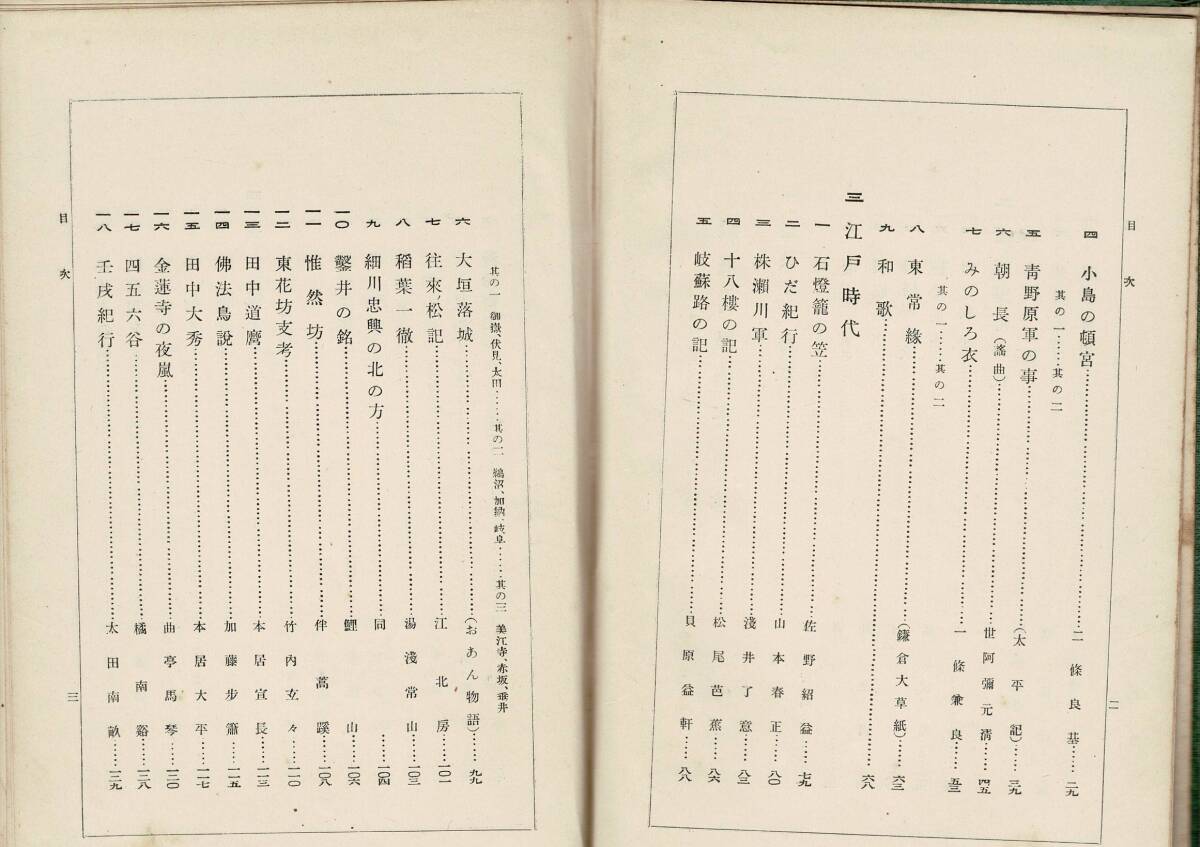 目次
四 小島の頓宮……二條良基……二九
其の一……其の二
五 青野原軍の事……(太平記)……三九
六 朝長(謠曲)……世阿彌元清……四五
七 みのしろ衣……一條兼良……五三
其の一……其の二
八 東常緣……(鎌倉大草紙)……六三
九 和歌……六八
三 江戸時代
一 石燈籠の笠……佐野紹益……七九
二 ひだ紀行……山本春正……八〇
三 株瀬川軍……淺井了意……八三
四 十八樓の記……松尾芭蕉……八六
五 岐蘇路の記……貝原益軒……八八
二
其の一 御嶽、伏見、太田……其の二 鵜沼、加納、岐阜……其の三 美江寺、赤坂、垂井
六 大垣落城……(おあん物語)……九九
七 往來ノ松記……江北房……一〇一
八 稻葉一徹……湯淺常山……一〇三
九 細川忠興の北の方……同……一〇四
一〇 鑿井の銘……鯉山……一〇六
一一 惟然坊……伴蒿蹊……一〇八
一二 東花坊支考……竹内玄々……一一〇
一三 田中道麿……本居宣長……一一三
一四 佛法鳥說……加藤步簫……一一五
一五 田中大秀……本居大平……一一七
一六 金蓮寺の夜嵐……曲亭馬琴……一二〇
一七 四五六谷……橘南谿……一二八
一八 壬戌紀行……太田南畝……一二九
目次
三